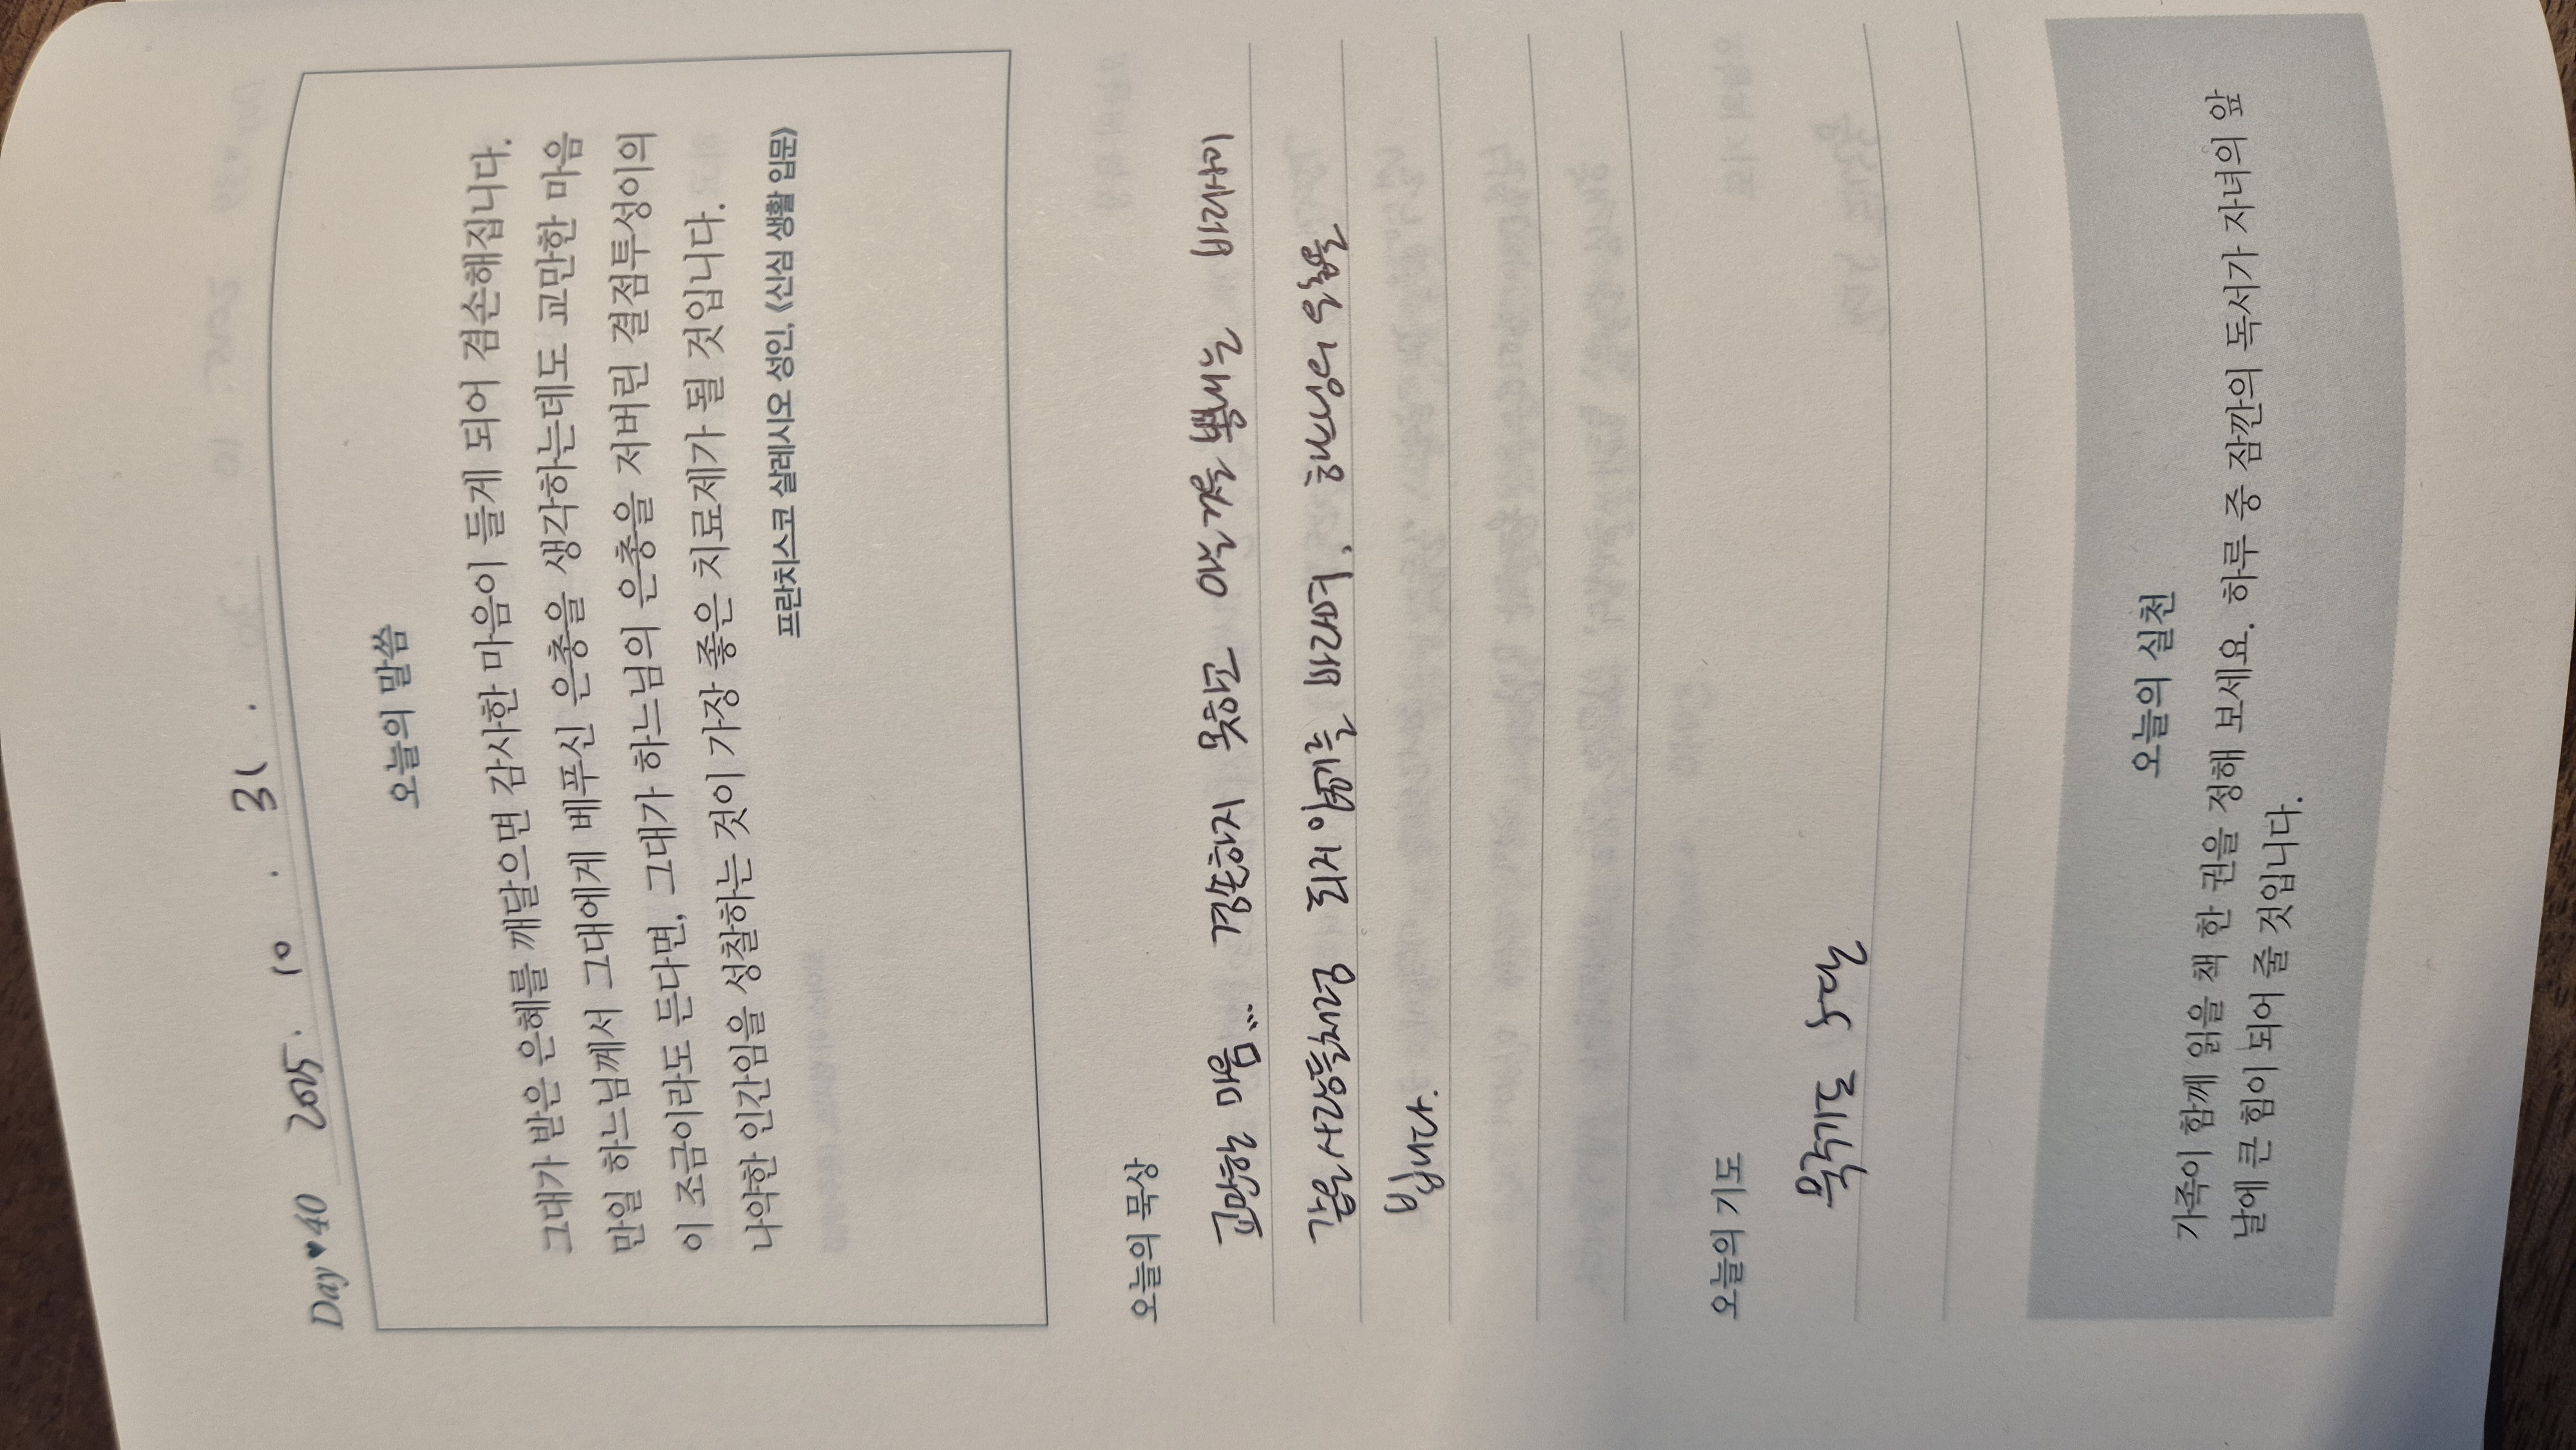 Day♥40 2025. 10. 31.
오늘의 말씀
그대가 받은 은혜를 깨달으면 감사한 마음이 들게 되어 겸손해집니다.
만일 하느님께서 그대에게 베푸신 은총을 생각하는데도 교만한 마음
이 조금이라도 든다면, 그대가 하느님의 은총을 저버린 결점투성이의
나약한 인간임을 성찰하는 것이 가장 좋은 치료제가 될 것입니다.
프란치스코 살레시오 성인, 《신심 생활 입문》
오늘의 묵상
교만한 마음... 겸손하지 못하고 아는 것을 뽐내는
같은 사람들처럼 되지 않기를 바라며,
빕니다.
오늘의 기도
묵주기도 5단
오늘의 실천
가족이 함께 읽을 책 한 권을 정해 보세요. 하루 중 잠깐의 독서가 자녀의 앞
날에 큰 힘이 되어 줄 것입니다.